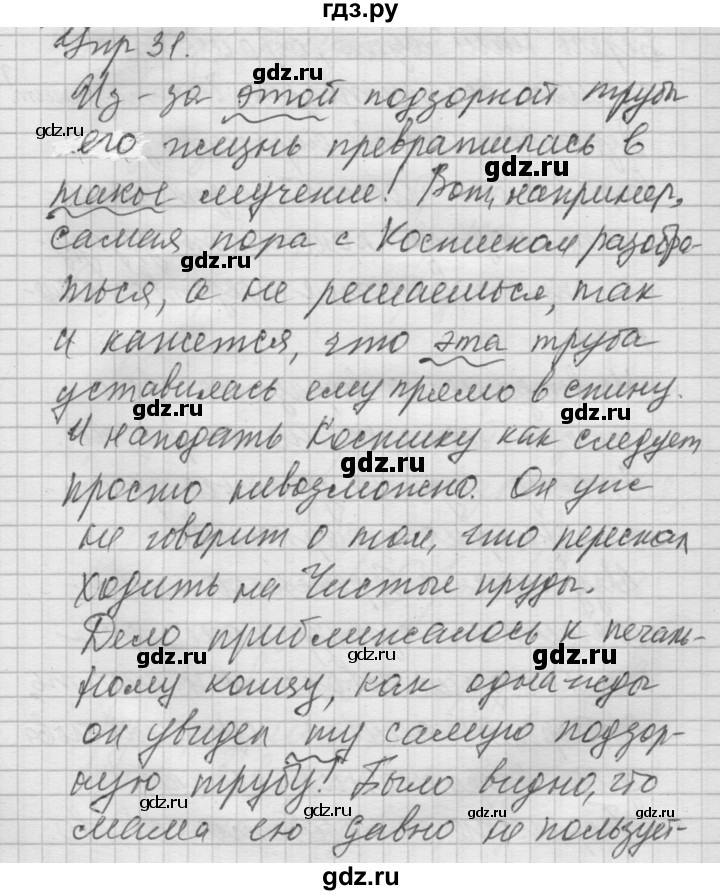 гдз.ру
Упр 31.
Из-за этой подзорной трубы
его жизнь превратилась в
такое мучение! Вот, например,
самая пора с Костиком разобра-
ться, а не решаешься, так
и кажется, что эта труба
уставилась ему прямо в спину.
И наподдать Костику как следует
просто невозможно. Он уже
не говорит о том, что перестал
ходить на Чистые пруды.
Дело приближалось к печаль-
ному концу, как однажды
он увидел ту самую подзор-
ную трубу! Было видно, что
мама ею давно не пользует-
gdz.ru
gdz.ru
gdz.ru
gdz.ru
gdz.ru
gdz.ru
gdz.ru
gdz.ru
gdz.ru
gdz.ru
gdz.ru
gdz.ru
gdz.ru
gdz.ru